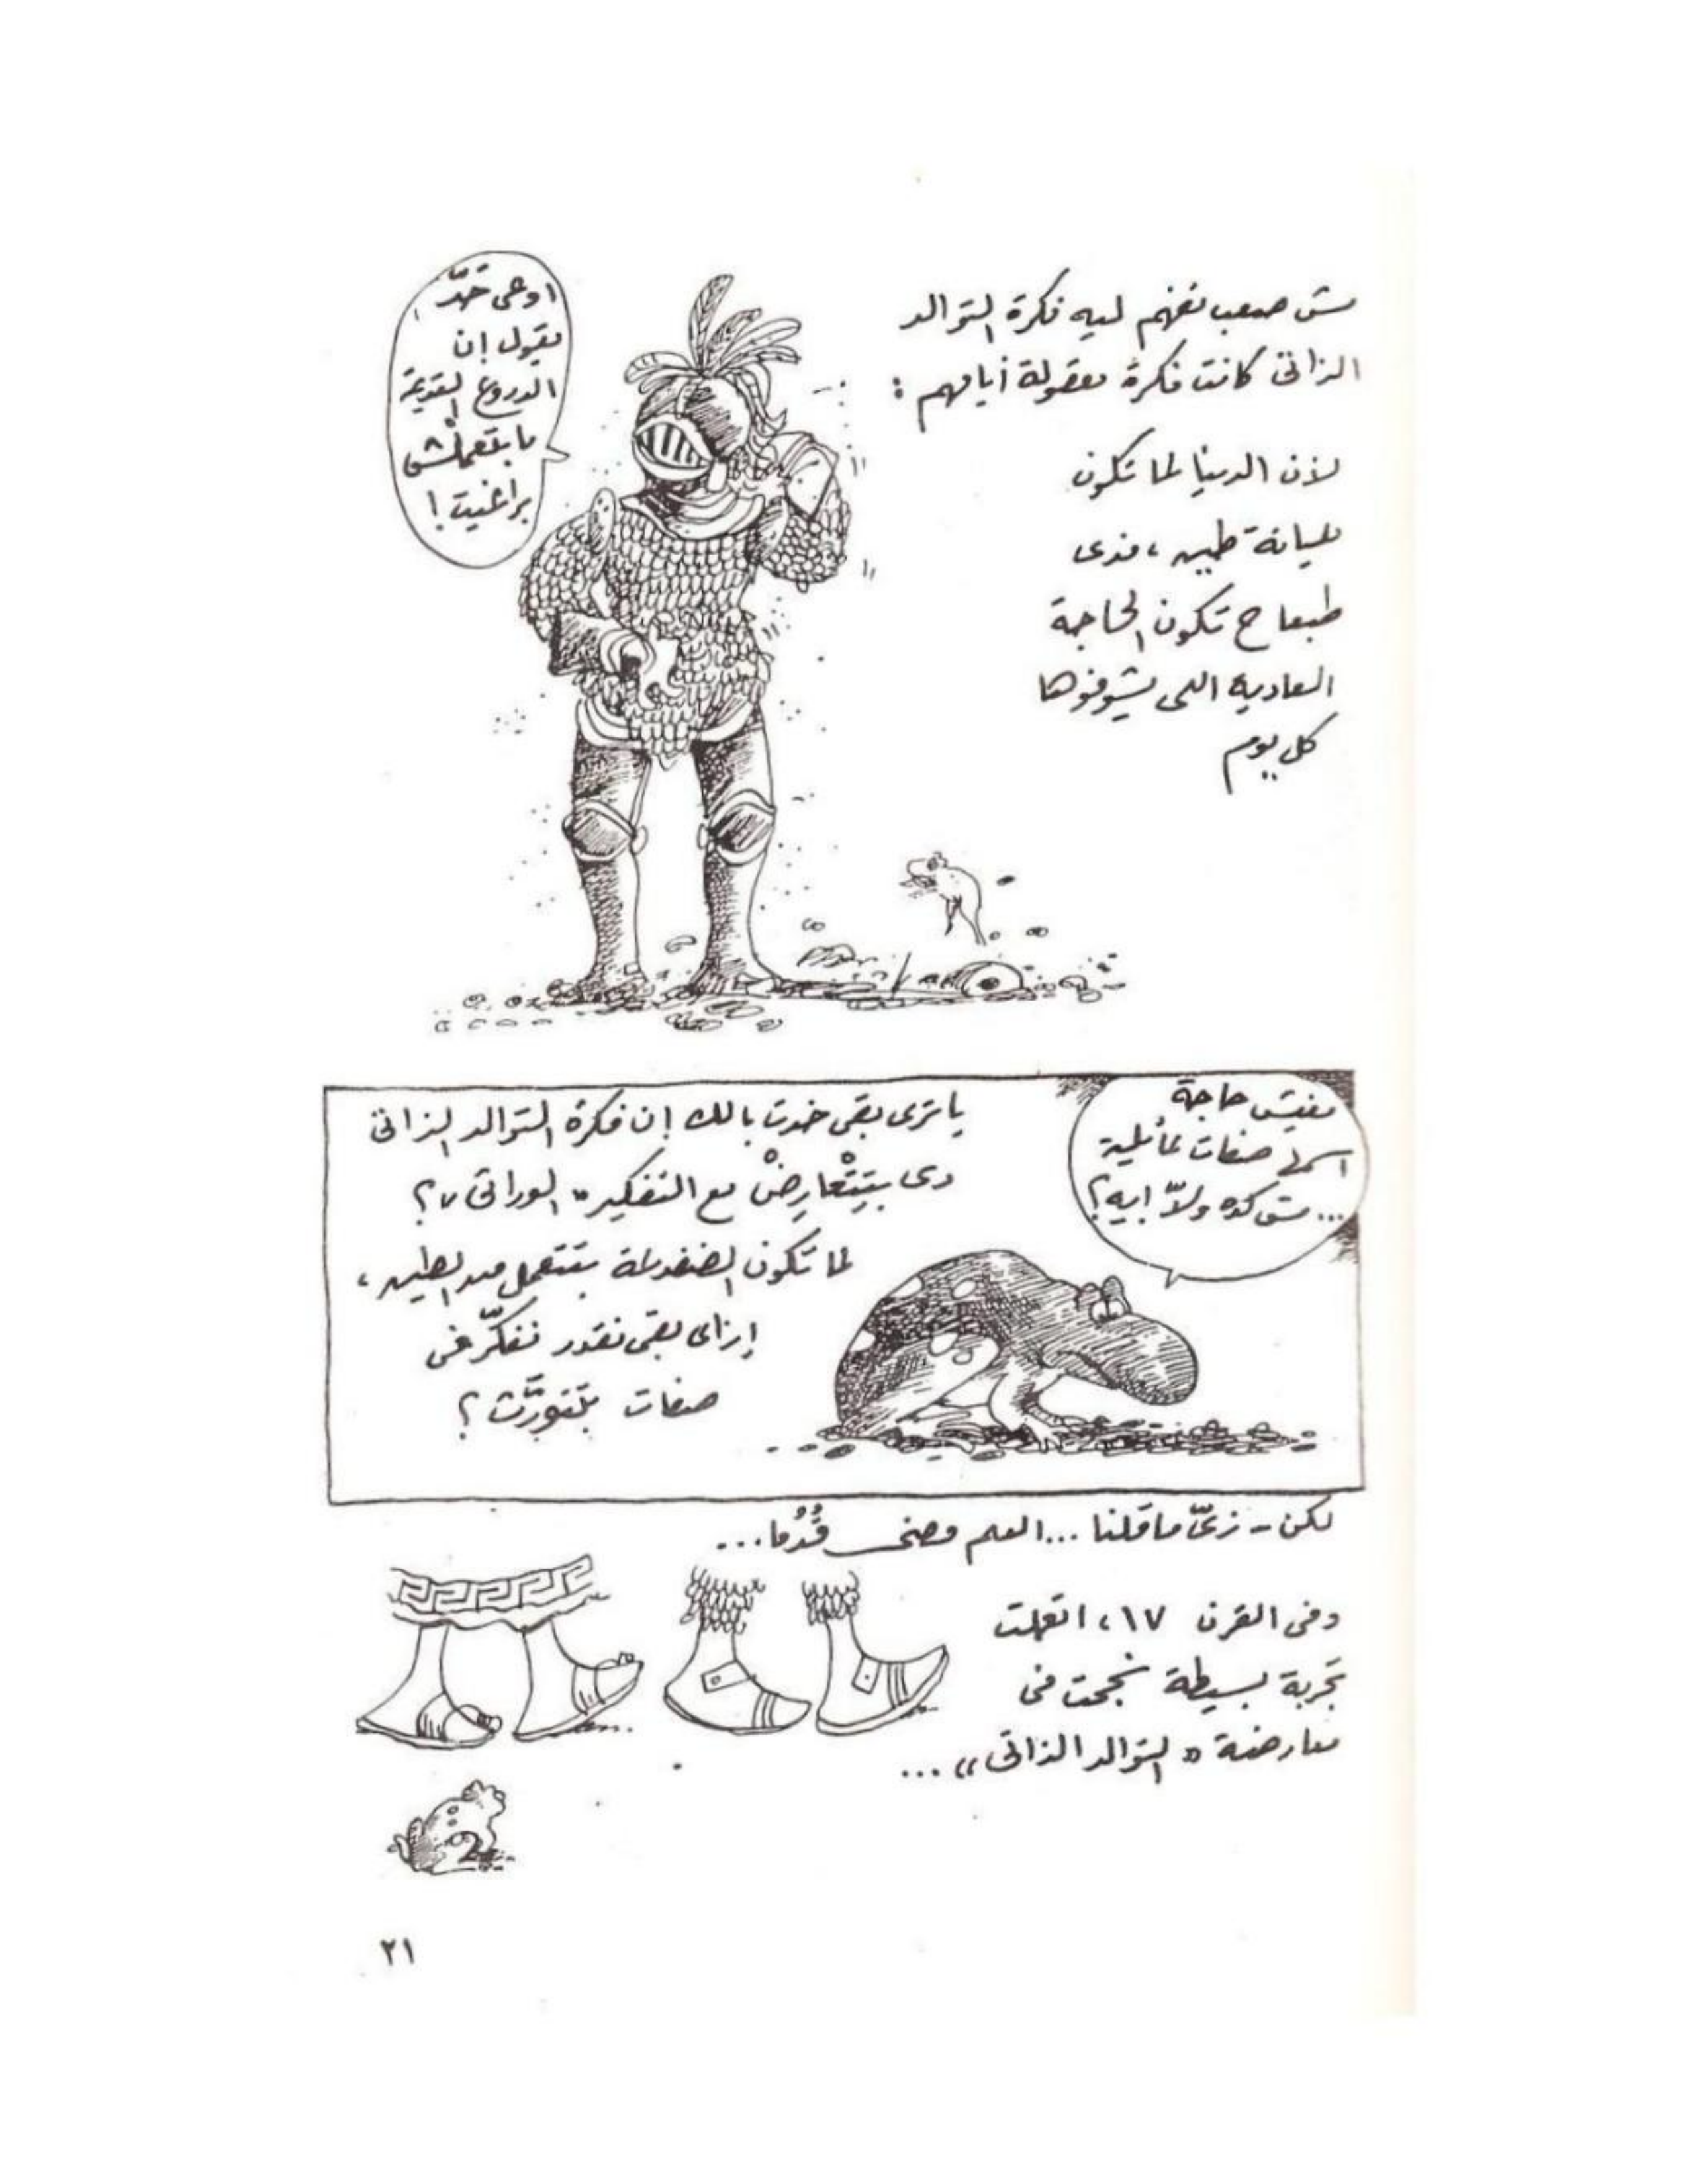 مش صعب نفهم ليه فكرة التوالد
الذاتى كانت فكرة معقولة أيامهم :
لأن الدنيا لما تكون
مليانة طين ، فدى
طبعا ح تكون الحاجة
العادية اللى يشوفوها
كل يوم
اوعى حدّ
يقول إن
الدروع القديمة
ما بتعملْش
براغيت !
مفيش حاجة
اسمها صفات عائلية
... مش كده ولاّ ايه ؟
يا ترى بقى خدت بالك إن فكرة التوالد الذاتى
دى بتِتْعارِضْ مع التفكير « الوراثى » ؟
لما تكون الضفدعة بتتعمل من الطين ،
إزاى بقى نقدر نفكّر فى
صفات بتتورّث ؟
لكن - زىّ ما قلنا ... العلم مضى قُدُما ...
وفى القرن ١٧ ، اتعملت
تجربة بسيطة نجحت فى
معارضة « التوالد الذاتى » ...
٢١